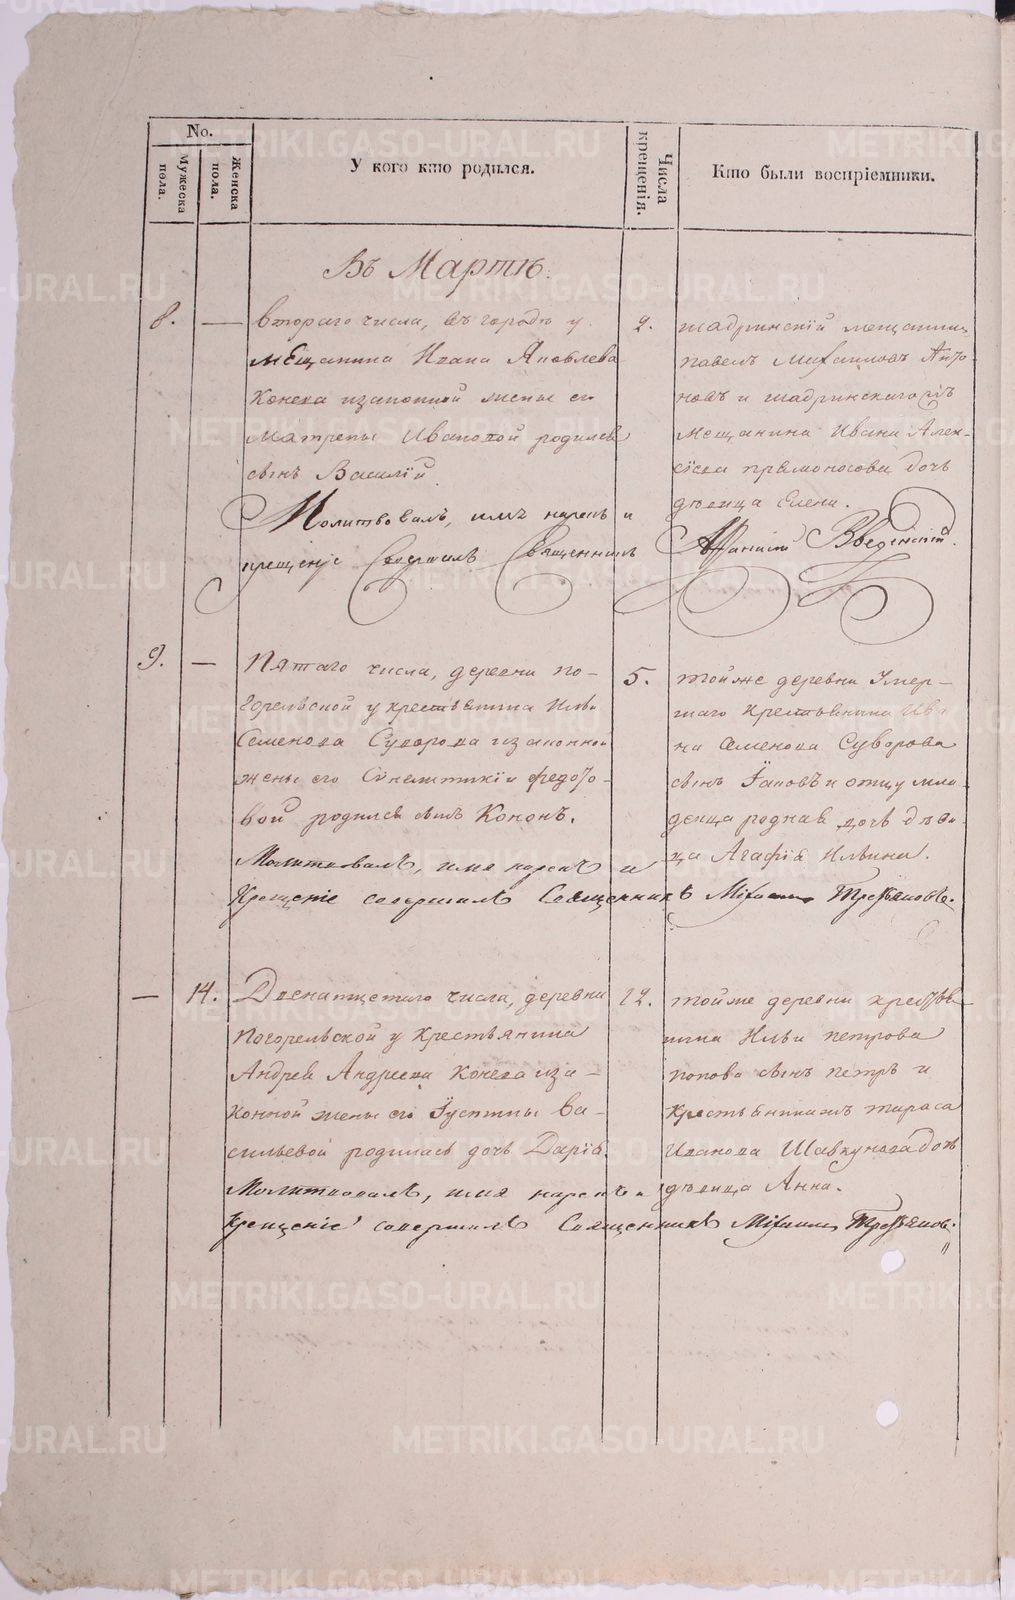 No.
Мужеска пола.
Женска пола.
У кого кто родился.
Числа крещенія.
Кто были воспріемники.
Въ Мартѣ.
8. — втораго числа, въ городѣ у
мѣщанина Ивана Яковлева
Конева изаконной жены его
Матрены Ивановой родился
сынъ Василій.
Молитвовалъ, имя нарекъ и
крещеніе Совершилъ Священникъ
2. шадринскій мещанинъ
павелъ Михаиловъ
новъ и шадринскаго
Мещанина Ивана Алек-
сіева прямоносова дочь
дѣвица Елена.
Афанасій Введенскій.
9. — Пятаго числа, деревни по-
горельской у крестьянина Ильи
Семенова Суворова изаконной
жены его Синклитикіи Федото-
вой родился сынъ Кононъ.
Молитвовалъ, имя нарекъ и
Крещеніе совершилъ Священникъ Михаилъ Третьяковъ.
5. тойже деревни Умер-
шаго крестьянина Ива
на Семенова Суворова
сынъ Іаковъ и отцу мла-
денца родная дочь дѣви-
ца Агафія Ильина.
— 14. Двенатцетаго числа, деревни
Погорельской у Крестьянина
Андрея Андреева Конева иза-
конной жены его Іустины Ва-
сильевой родилась дочь Дарія.
Молитвовалъ, имя нарекъ и
Крещеніе совершилъ Священникъ Михаилъ Третьяковъ.
12. тойже деревни крестья-
нина Ильи петрова
попова сынъ петръ и
Крестьянина тараса
Иванова Шавкунова дочь
дѣвица Анна.
METRIKI.GASO-URAL.RU